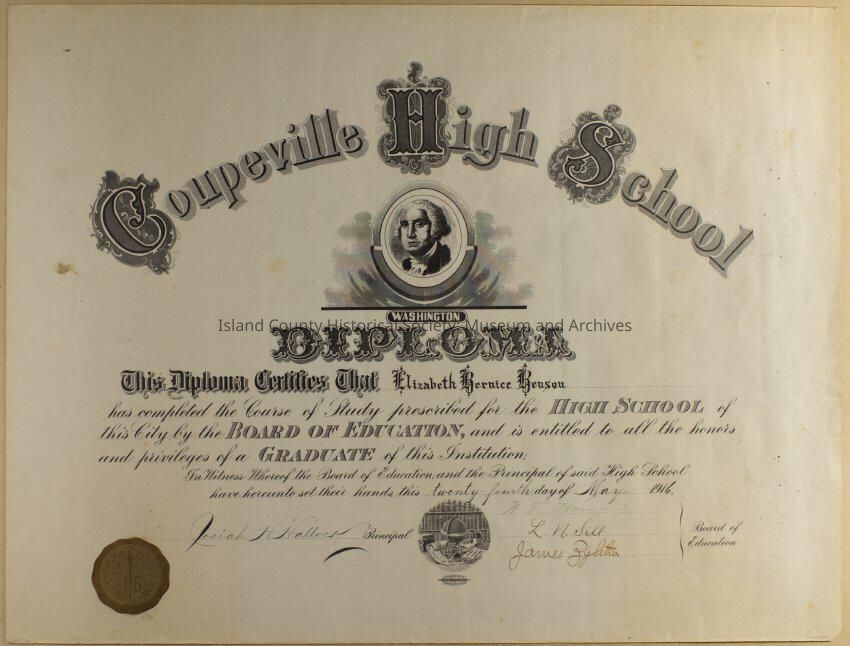 Coupeville High School
WASHINGTON
Island County Historical Society, Museum and Archives
DIPLOMA
This Diploma Certifies That Elizabeth Bernice Benson
has completed the Course of Study prescribed for the HIGH SCHOOL of
this City by the BOARD OF EDUCATION, and is entitled to all the honors
and privileges of a GRADUATE of this Institution.
In Witness Whereof the Board of Education and the Principal of said High School
have hereunto set their hands this twenty fourth day of May 1916.
Josiah H Principal
L. N. Sill
James
Board of
Education